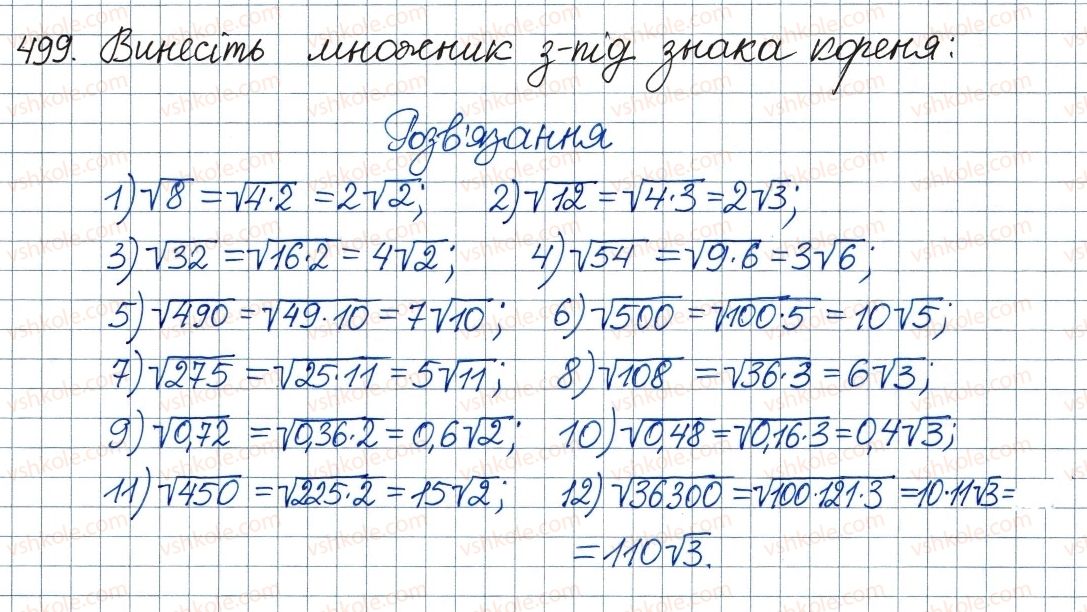 499. Винесіть множник з-під знака кореня:
Розв'язання
1) √8 = √4·2 = 2√2; 2) √12 = √4·3 = 2√3;
3) √32 = √16·2 = 4√2; 4) √54 = √9·6 = 3√6;
5) √490 = √49·10 = 7√10; 6) √500 = √100·5 = 10√5;
7) √275 = √25·11 = 5√11; 8) √108 = √36·3 = 6√3;
9) √0,72 = √0,36·2 = 0,6√2; 10) √0,48 = √0,16·3 = 0,4√3;
11) √450 = √225·2 = 15√2; 12) √36300 = √100·121·3 = 10·11√3 =
= 110√3.